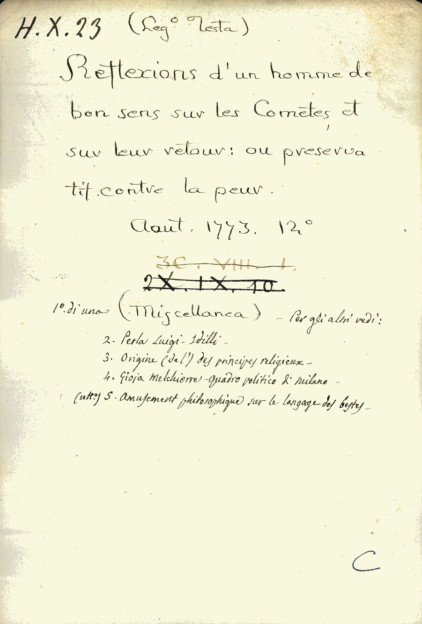 H.X.23 (Leg.º Testa)
Reflexions d'un homme de
bon sens sur les Comètes et
sur leur retour: ou preserva
tif contre la peur.
Aout. 1773. 12º
3C. VIII. 1.
2X. IX. 10.
1º di una (Miscellanea) - Per gli altri vedi:
2. Perla Luigi - Idilli -
3. Origine (de l') des principes religieux -
4. Gioja Melchiorre - Quadro politico di Milano -
5. Amusement philosophique sur le langage des bestes -
C